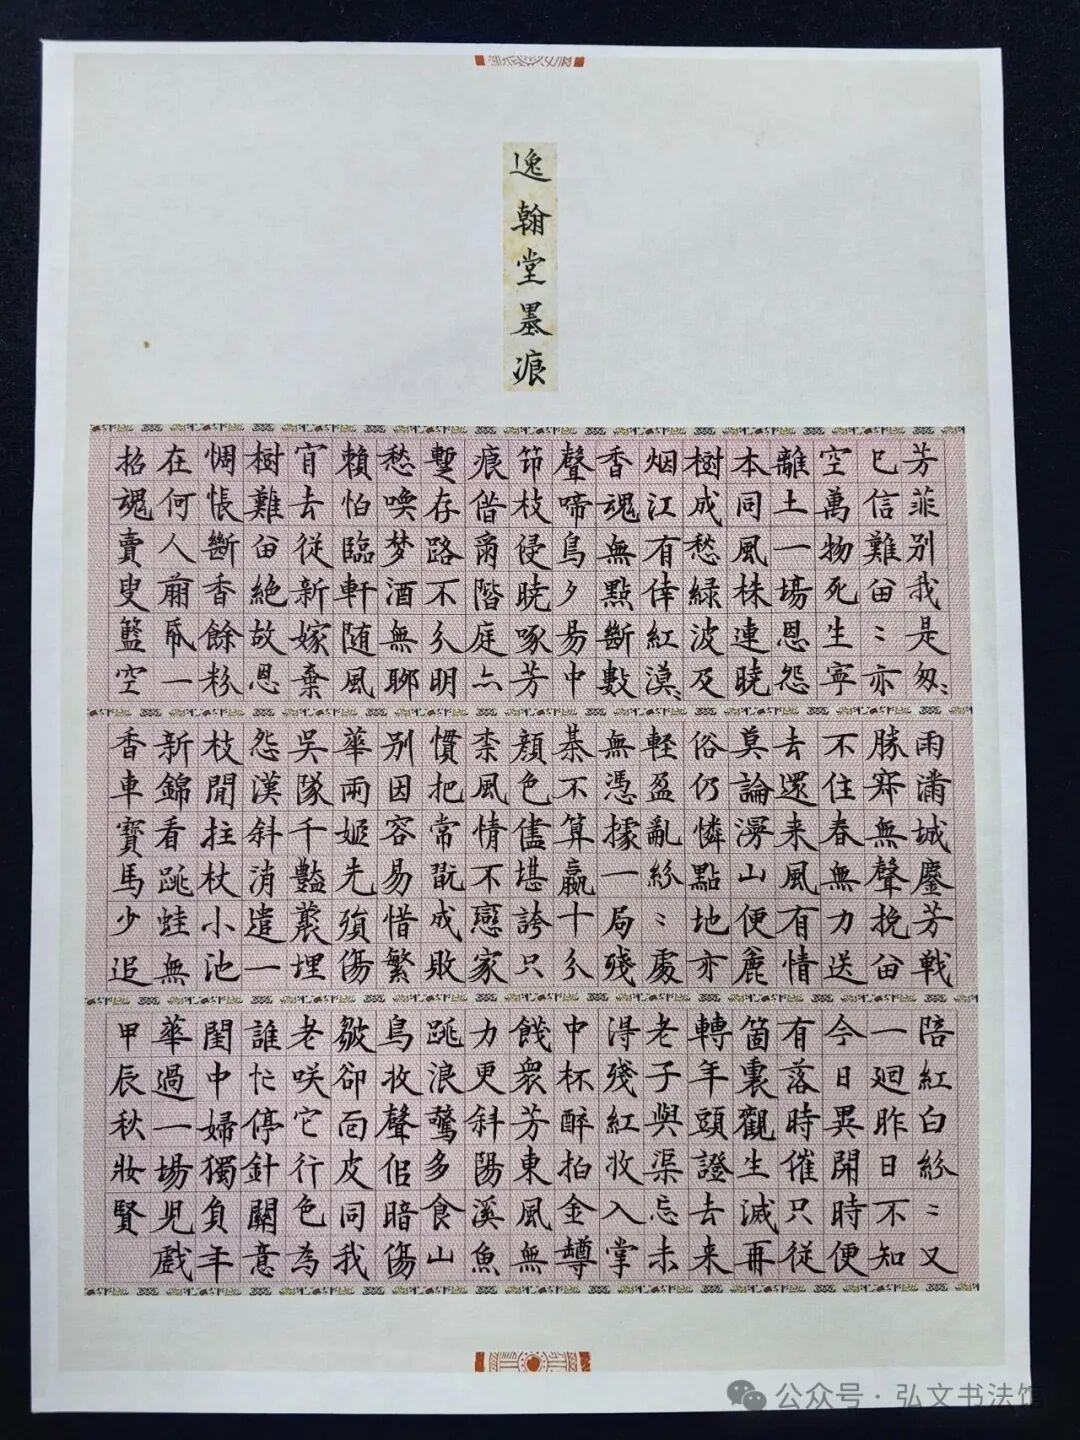 逸翰堂墨痕
芳菲別我是匆〻
已信難留〻亦
空萬物死生寧
離土一場恩怨
本同風株連曉
樹成愁綠波及
烟江有倖紅漠〻
香魂無點斷數
聲啼鳥夕易中
節枝侵曉啄芳
痕偕爾階庭亦
蹔存路不分明
愁喚梦酒無聊
賴怕臨軒随風
宵去從新嫁棄
樹難留絶故恩
惆悵斷香餘粉
在何人前一
招魂賣叟籃空
雨滿城鏖芳戰
勝霽無聲挽留
不住春無力送
去還来風有情
莫論山便麄
俗仍憐點地亦
輕盈亂紛〻處
無憑據一局殘
棊不算贏十分
顏色儘堪誇只
柰風情不戀家
慣把常翫成敗
別因容易惜繁
華兩姬先殞傷
吳隊千豔叢埋
怨漢斜消遣一
枝閒拄杖小池
新錦看跳蛙無
香車寶馬少追
陪紅白紛〻又
一廻昨日不知
今日異開時便
有落時催只從
箇裏觀生滅再
轉年頭證去来
老子與渠忘未
淂殘紅收入掌
中杯醉拍金罇
餞衆芳東風無
力更斜陽溪魚
跳浪驚多食山
鳥收聲佀暗傷
皺卻面皮同我
老咲它行色為
誰忙停針關意
閨中婦獨負年
華過一場児戲
甲辰秋妝賢
公众号·弘文书法馆